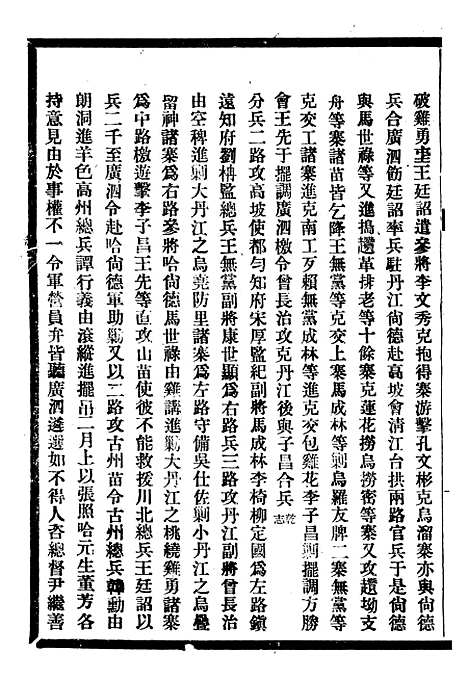 破雞勇圭王廷詔遣參將李文秀克抱得寨游擊孔文彬克烏溜寨亦與尙德
兵合廣泗飭廷詔率兵駐丹江尙德赴高坡會清江台拱兩路官兵于是尙德
與馬世祿等又進搗還革排老等十餘寨克蓮花撈烏撈密等寨又攻還坳支
舟等寨諸苗皆乞降王無黨等克交上寨馬成林等剿烏羅友牌二寨無黨等
克交工諸寨進克南工歹賴無黨成林等進克交包雞花李子昌剿擺調方勝
會王先于擺調廣泗檄令曾長治攻克丹江後與子昌合兵乾志
分兵二路攻高坡使都勻知府宋厚監紀副將馬成林李椅柳定國爲左路鎭
遠知府劉柟監總兵王無黨副將康世顯爲右路兵三路攻丹江副將曾長治
由空稗進剿大丹江之烏堯防里諸寨爲左路守備吳仕佐剿小丹江之烏疊
留神諸寨爲右路參將哈尙德馬世祿由雞講進剿大丹江之桃繞雞勇諸寨
爲中路檄遊擊李子昌王先等直攻山苗使彼不能救援川北總兵王廷詔以
兵二千至廣泗令赴哈尙德軍助剿又以二路攻古州苗令古州總兵韓勳由
朗洞進羊色高州總兵譚行義由滾縱進擺吊二月上以張照哈元生董芳各
持意見由於事權不一令軍營員弁皆聽廣泗遴選如不得人咨總督尹繼善